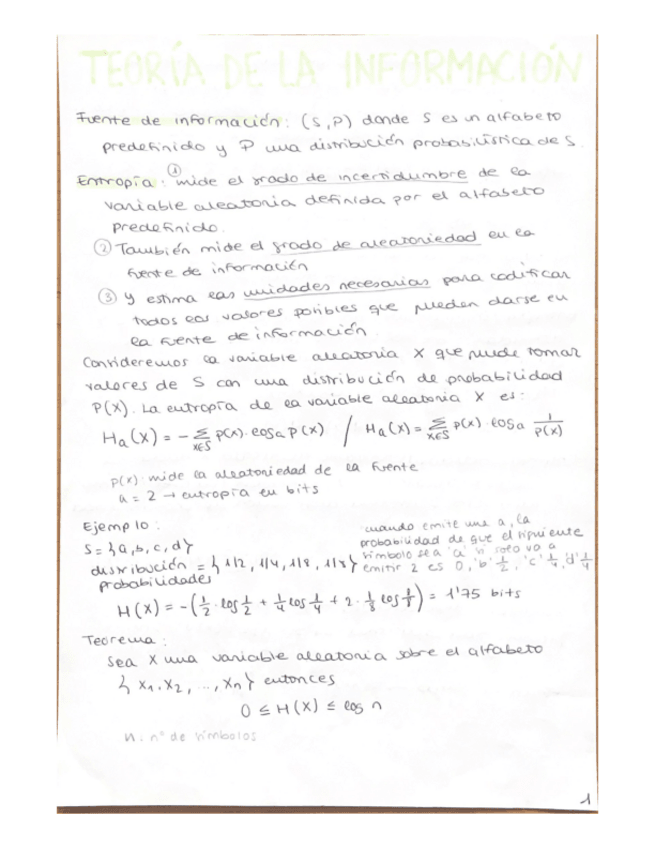 TEORÍA DE LA INFORMACIÓN
Fuente de información: (S,P) donde S es un alfabeto
predefinido y P una distribución probabilística de S.
Entropía: ① mide el grado de incertidumbre de la
variable aleatoria definida por el alfabeto
predefinido.
② También mide el grado de aleatoriedad en la
fuente de información
③ y estima las unidades necesarias para codificar
todos los valores posibles que pueden darse en
la fuente de información.
Consideremos la variable aleatoria X que puede tomar
valores de S con una distribución de probabilidad
P(X). La entropía de la variable aleatoria X es:
Ha(X) = - Σ x∈S P(X) · loga P(X) / Ha(X) = Σ x∈S P(X) · loga 1/P(X)
P(X): mide la aleatoriedad de la fuente
a = 2 → entropía en bits
Ejemplo:
S = {a, b, c, d}
distribución = {1/2, 1/4, 1/8, 1/8}
probabilidades
cuando emite una a, la
probabilidad de que el siguiente
símbolo sea 'a' si solo va a
emitir 2 es 0, 'b' 1/2, 'c' 1/4, 'd' 1/4
H(X) = -(1/2 · log 1/2 + 1/4 log 1/4 + 2 · 1/8 log 1/8) = 1'75 bits
Teorema:
Sea X una variable aleatoria sobre el alfabeto
{x1, x2, ..., xn} entonces
0 ≤ H(X) ≤ log n
n: nº de símbolos
1